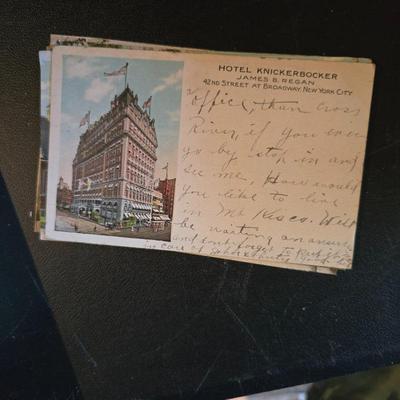 HOTEL KNICKERBOCKER
JAMES B. REGAN
42ND STREET AT BROADWAY, NEW YORK CITY
office, than Cross
River, if you ever
go by stop in and
see me, How would
you like to live
in Mt Kisco. Will
be waiting an answer
and dont forget to
care of